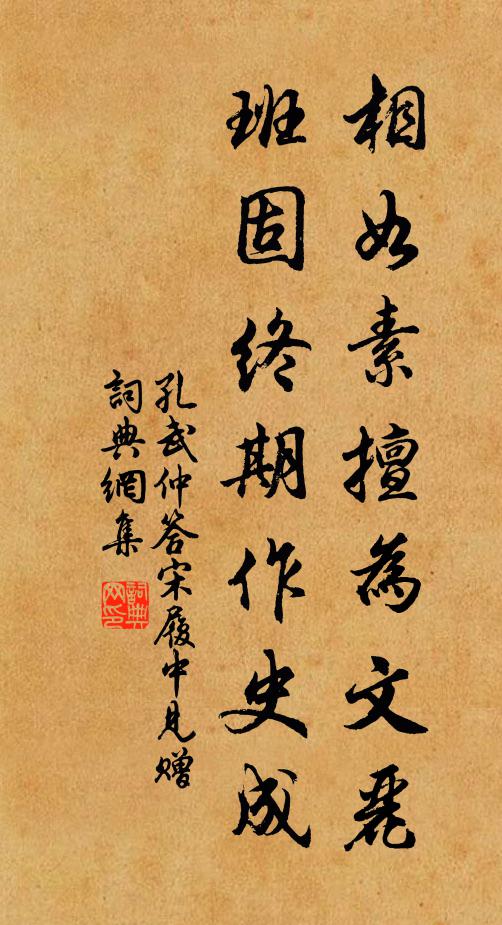 相如素擅為文麗
班固終期作史成
孔武仲答宋履中見贈
詞典網集
詞典網印